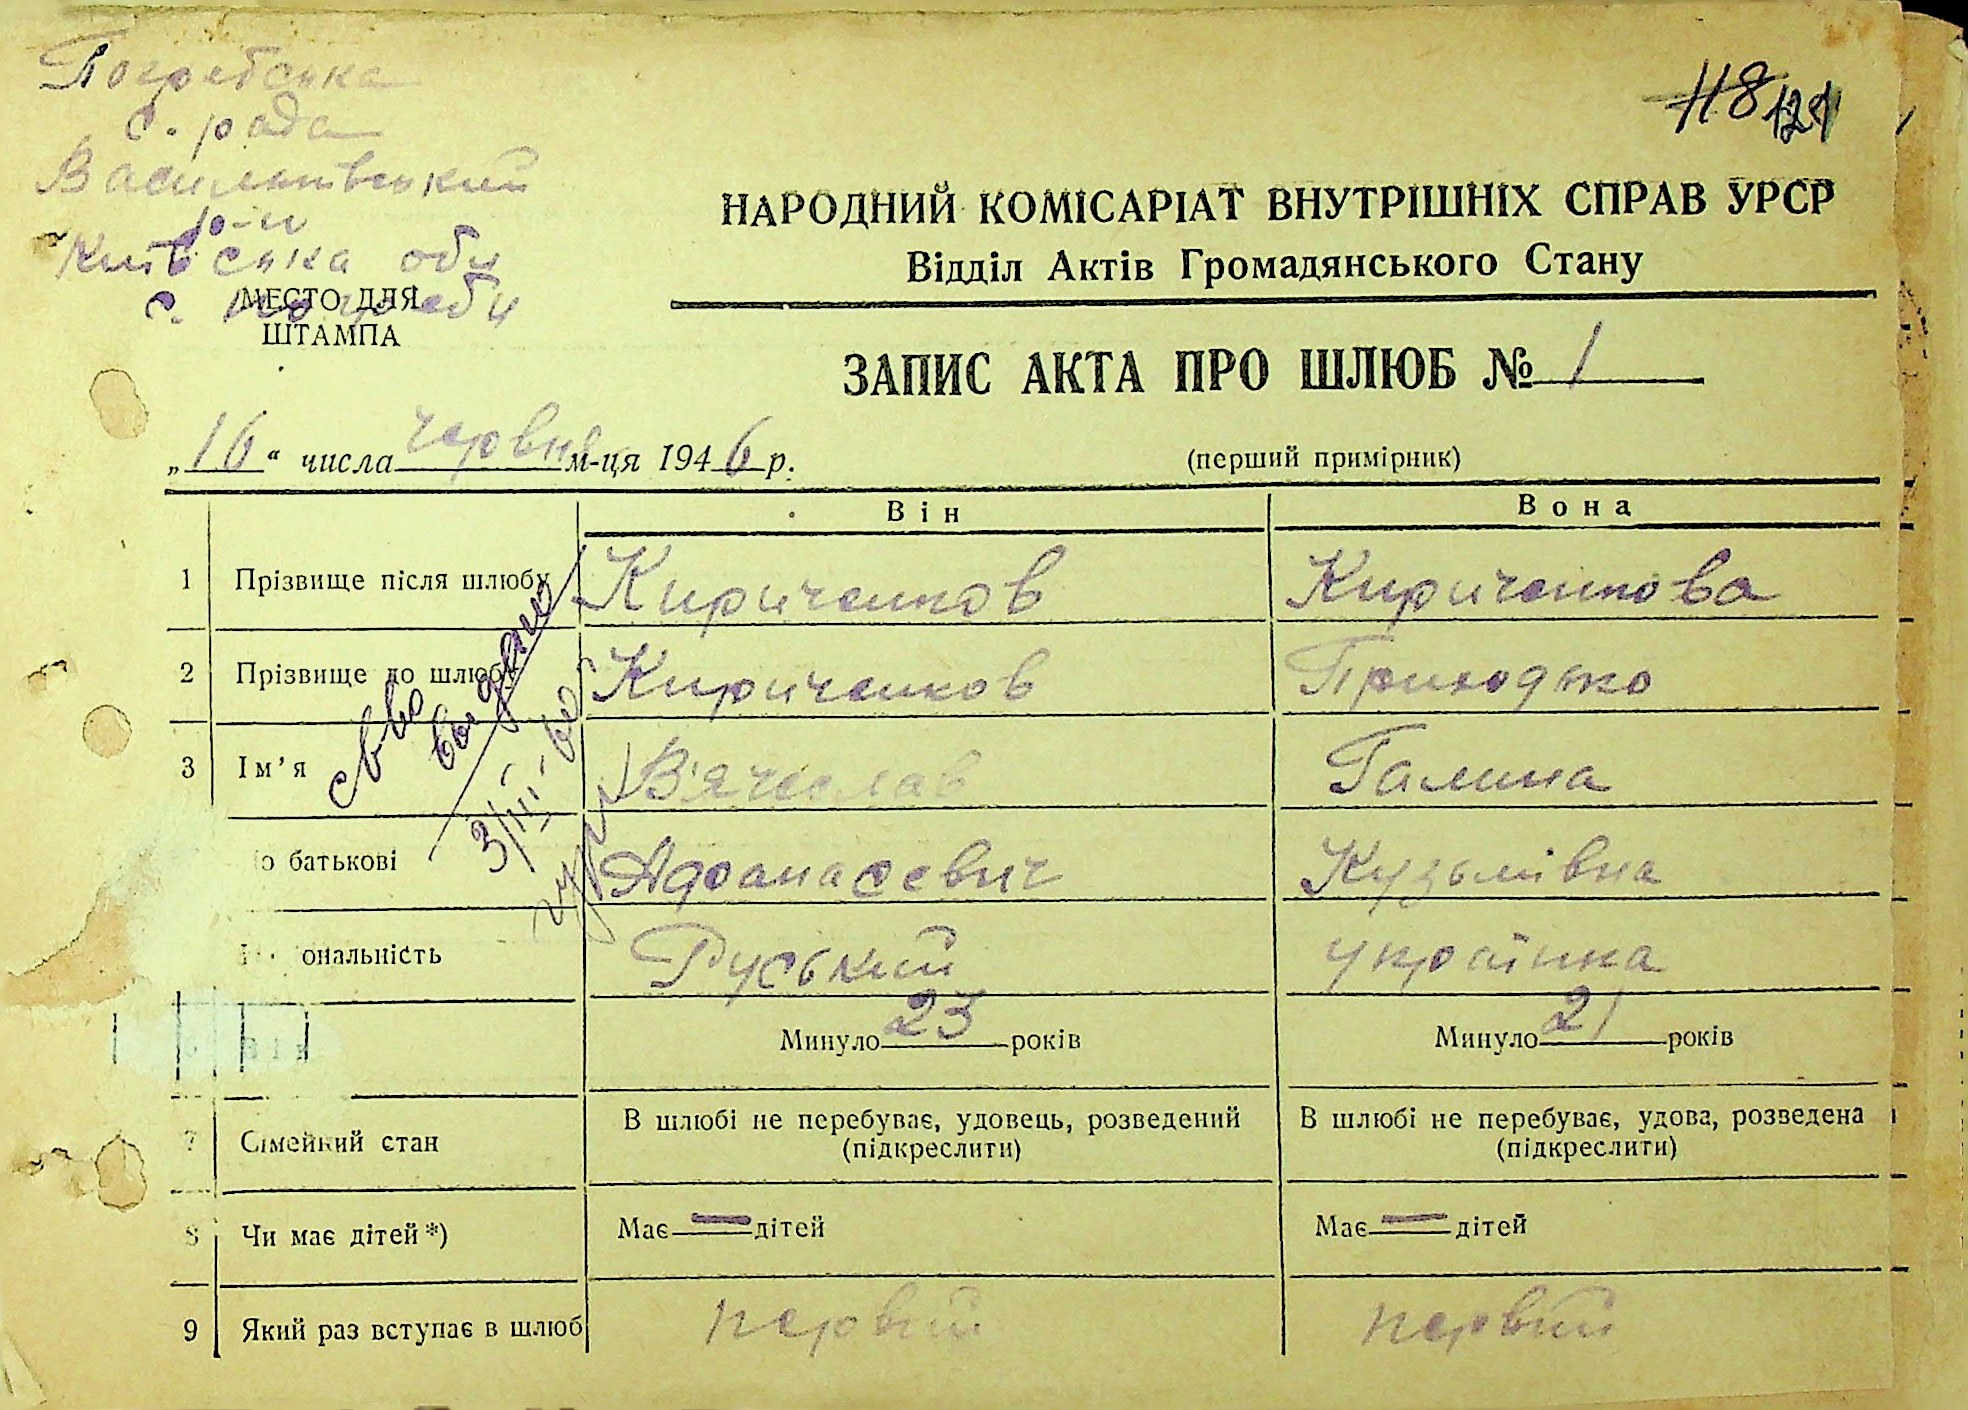 Погребська
с. рада
Васильківський
р-н
Київська обл
с. Погреби
МЕСТО ДЛЯ
ШТАМПА
118 121
НАРОДНИЙ КОМІСАРІАТ ВНУТРІШНІХ СПРАВ УРСР
Відділ Актів Громадянського Стану
ЗАПИС АКТА ПРО ШЛЮБ № 1
„16“ числа червня м-ця 1946 р.
(перший примірник)
Він Вона
1 Прізвище після шлюбу Кириченков Кириченкова
2 Прізвище до шлюбу Кириченков Приходько
3 Ім’я В'ячеслав Галина
о батькові Афанасєвич Кузьмівна
ональність Руський українка
Вік Минуло 23 років Минуло 21 років
7 Сімейний стан В шлюбі не перебуває, удовець, розведений (підкреслити) В шлюбі не перебуває, удова, розведена (підкреслити)
8 Чи має дітей*) Має — дітей Має — дітей
9 Який раз вступає в шлюб первий первий
св-во
выдано
3/III